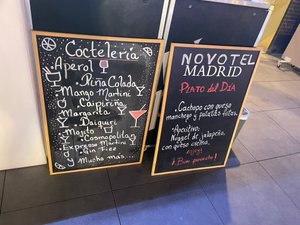 Coctelería
Aperol
Piña Colada
Mango Martini
Caipiriña
Margarita
Daiquiri
Mojito
Cosmopolitan
Expresso Martini
Gin Fizz
y Mucho mas...
NOVOTEL
MADRID
PLATO DEL DÍA
. Cachopo con queso
manchego y patatas fritas.
. Aperitivo:
Nugget de jalapeño,
con queso
¡Buen provecho!